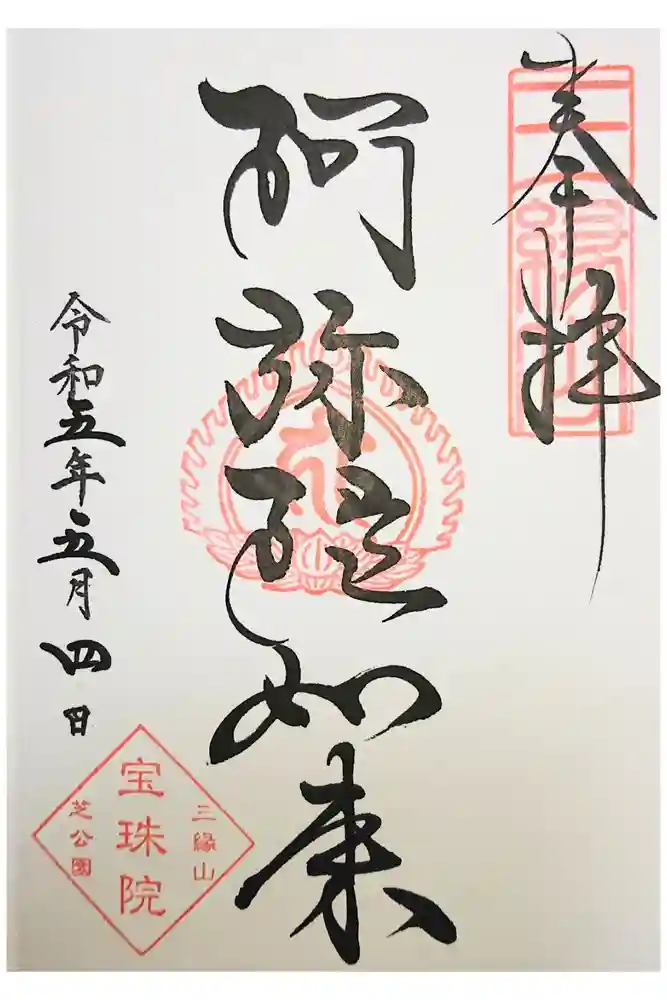 奉拝
三縁山
阿弥陀如来
令和五年五月四日
三縁山
宝珠院
芝公園